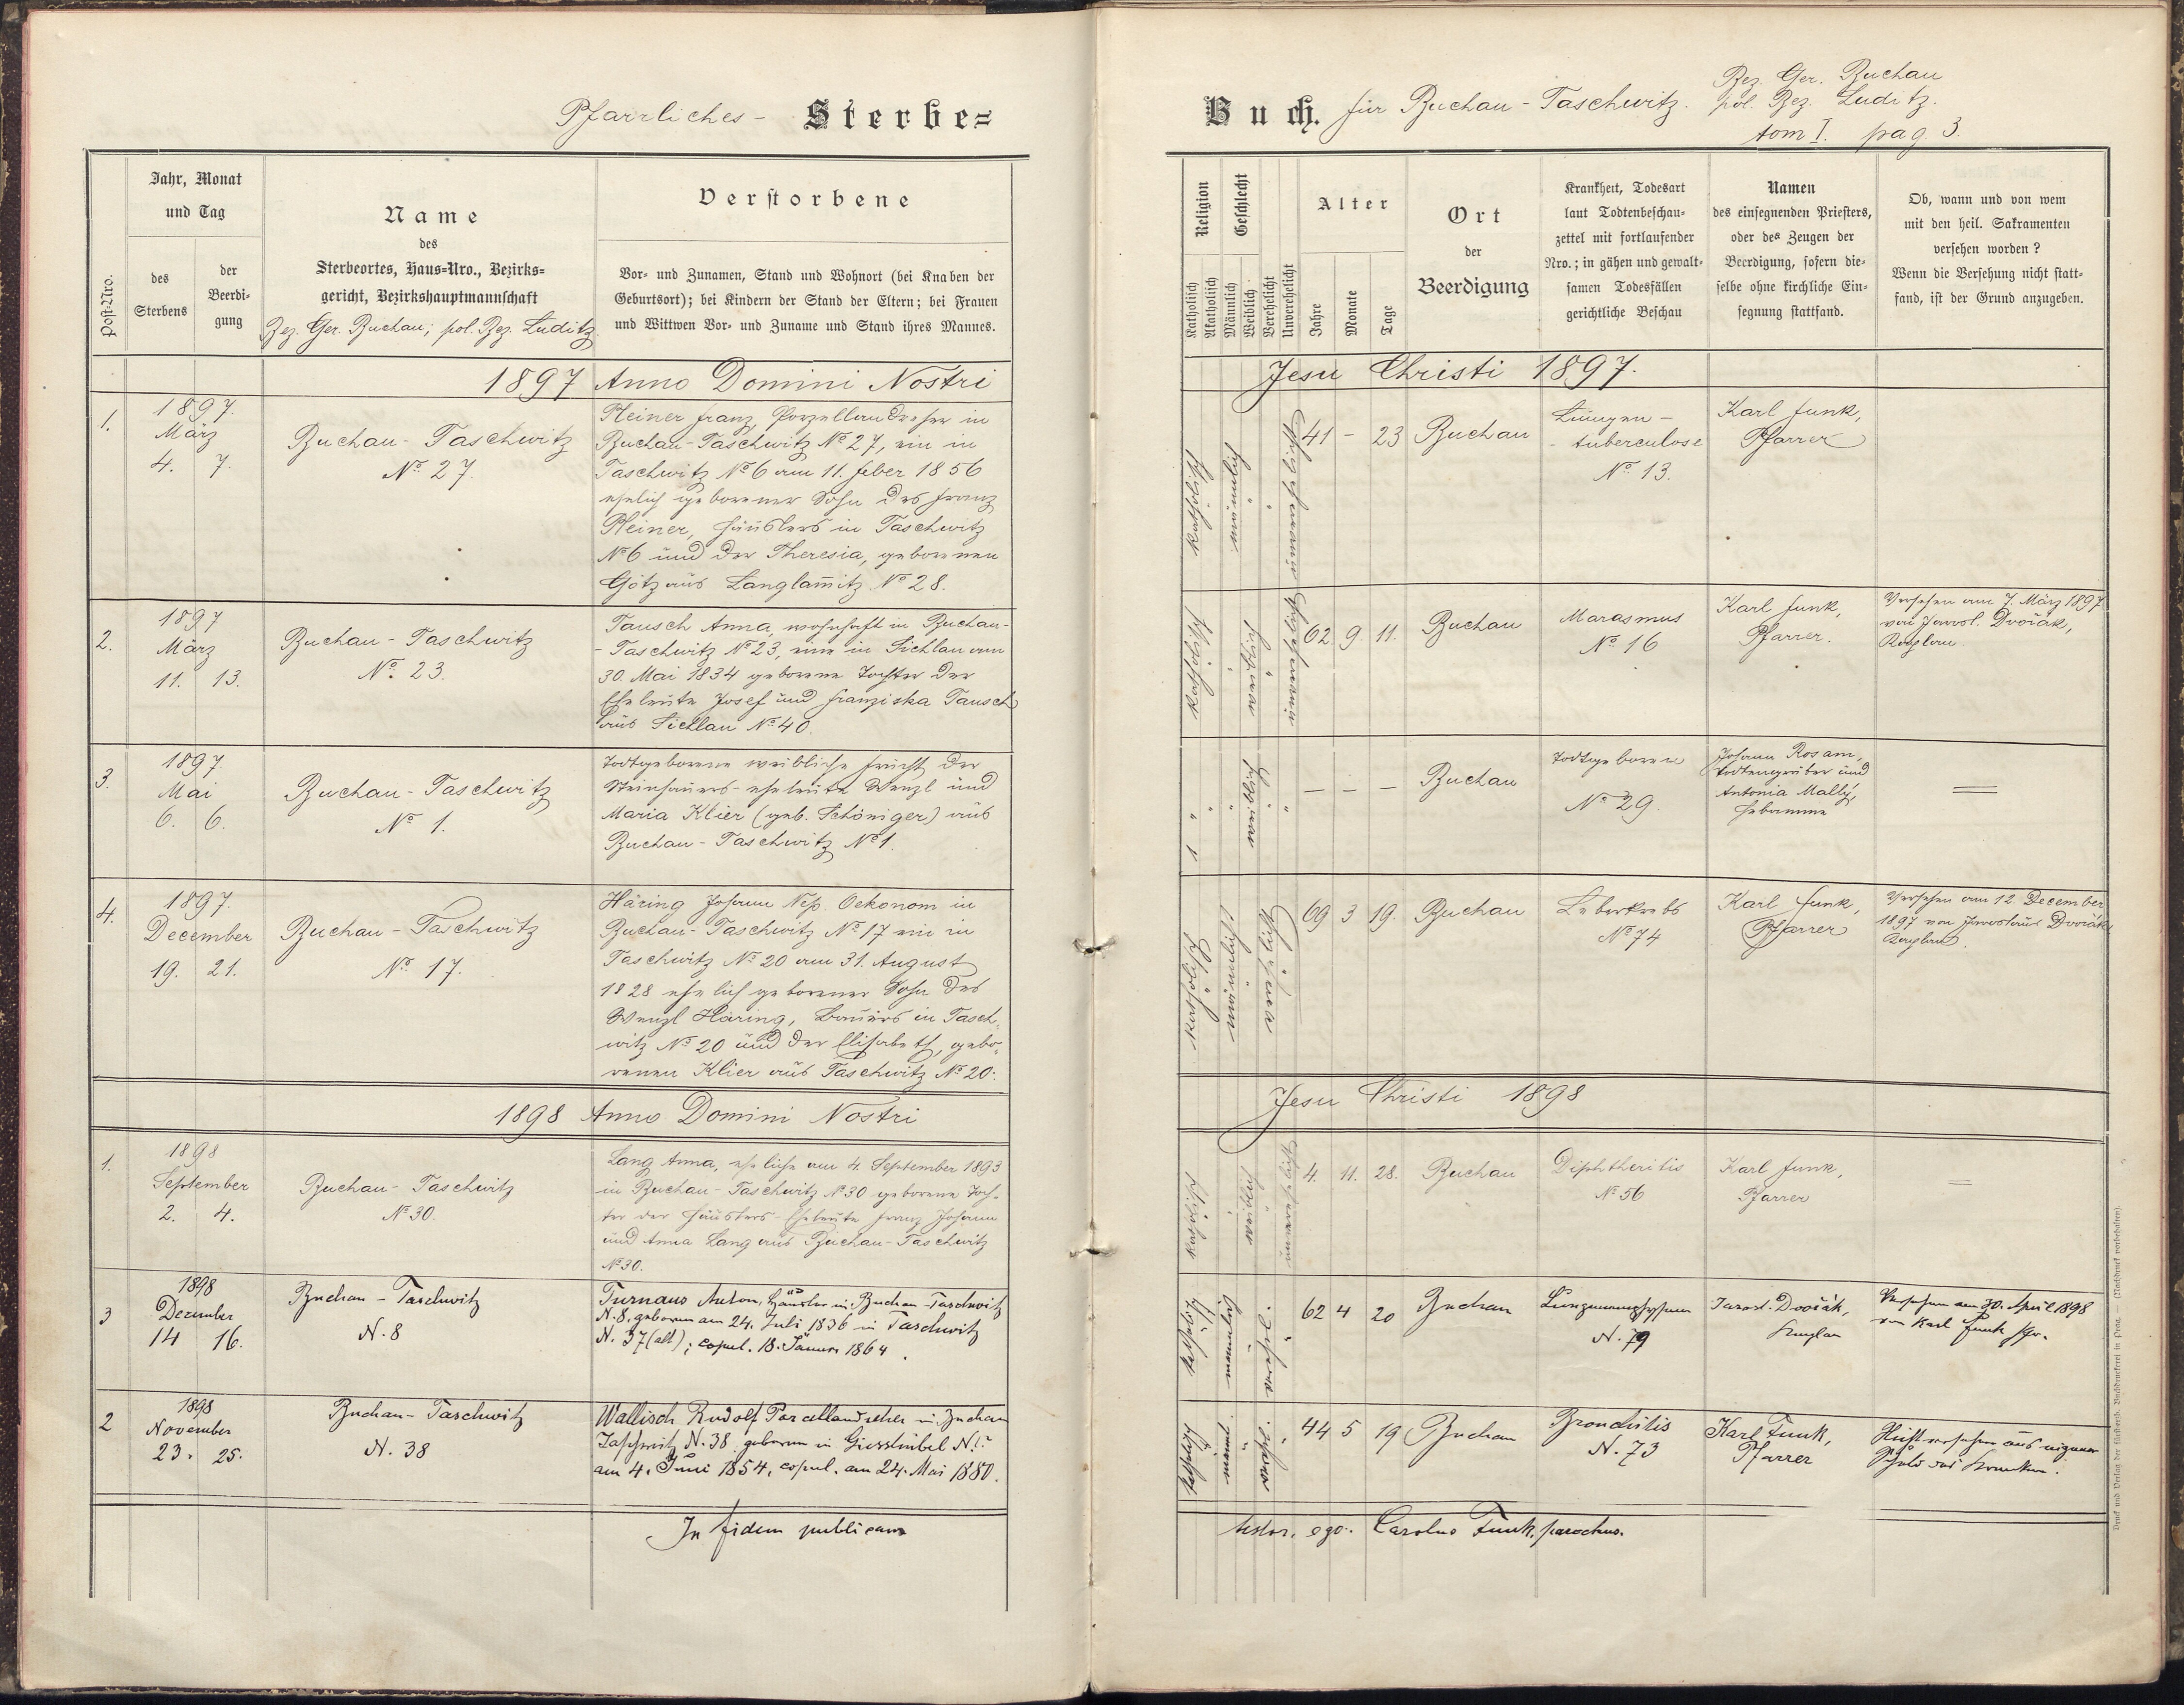 Pfarrliches - Sterbe=
Buch. für Buchau - Taschwitz.
Bez. Ger. Buchau
pol. Bez. Luditz.
tom I. pag. 3.
Post-Nro.
Jahr, Monat
und Tag
des
Sterbens
der
Beerdi-
gung
Name
des
Sterbeortes, Haus=Nro., Bezirks=
gericht, Bezirkshauptmannschaft
Bez. Ger. Buchau; pol. Bez. Luditz.
Verstorbene
Vor- und Zunamen, Stand und Wohnort (bei Knaben der
Geburtsort); bei Kindern der Stand der Eltern; bei Frauen
und Wittwen Vor- und Zuname und Stand ihres Mannes.
Religion
Katholisch
Akatholisch
Geschlecht
Männlich
Weiblich
Verehelicht
Unverehelicht
Alter
Jahre
Monate
Tage
Ort
der
Beerdigung
Krankheit, Todesart
laut Todtenbeschau-
zettel mit fortlaufender
Nro.; in gähen und gewalt-
samen Todesfällen
gerichtliche Beschau
Namen
des einsegnenden Priesters,
oder des Zeugen der
Beerdigung, sofern die-
selbe ohne kirchliche Ein-
segnung stattfand.
Ob, wann und von wem
mit den heil. Sakramenten
versehen worden?
Wenn die Versehung nicht statt-
fand, ist der Grund anzugeben.
1897 Anno Domini Nostri
Jesu Christi 1897.
1.
1897.
März
4. 7.
Buchau - Taschwitz
No. 27.
Pleiner Franz, Porzellandreher in
Buchau-Taschwitz No 27, ein in
Taschwitz No 6 am 11. Feber 1856
ehelich geborener Sohn des Franz
Pleiner, Häuslers in Taschwitz
No 6 und der Theresia, geborenen
Götz aus Langlam̄itz No 28.
katholisch
männlich
41 - 23
Buchau
Lungen -
- tuberculose
No 13.
Karl Funk,
Pfarrer
2.
1897
März
11. 13.
Buchau - Taschwitz
No. 23.
Tausch Anna, wohnhaft in Buchau-
- Taschwitz No 23, eine in Sichlau am
30. Mai 1834 geborene Tochter der
Eheleute Josef und Franziska Tausch
aus Sichlau No 40.
katholisch
weiblich
62 9. 11.
Buchau
Marasmus
No 16
Karl Funk,
Pfarrer.
Versehen am 7. März 1897
von Jarosl. Dvořák,
Kaplan.
3.
1897.
Mai
6. 6.
Buchau - Taschwitz
No 1.
Todtgeborene weibliche Frucht der
Steinhauers-eheleute Wenzl und
Maria Klier (geb. Schöniger) aus
Buchau - Taschwitz No 1.
weiblich
- - -
Buchau
todtgeboren
No 29.
Johann Rosam,
Todtengräber und
Antonia Mally,
Hebamme
4.
1897.
December
19. 21.
Buchau - Taschwitz
No 17.
Häring Johann Nep. Oekonom in
Buchau-Taschwitz No 17 ein in
Taschwitz No 20 am 31. August
1828 ehelich geborener Sohn des
Wenzl Häring, Bauers in Tasch-
witz No 20 und der Elisabeth, gebo-
renen Klier aus Taschwitz No 20.
katholisch
männlich
verehelicht
69 3 19.
Buchau
Leberkrebs
No 74
Karl Funk,
Pfarrer
Versehen am 12. December
1897 von Jaroslaus Dvořák
Kaplan.
1898 Anno Domini Nostri
Jesu Christi 1898
1.
1898
September
2. 4.
Buchau - Taschwitz
No 30.
Lang Anna, eheliche am 4. September 1893
in Buchau-Taschwitz No 30 geborene Toch-
ter der Häuslers-Eheleute Franz Johann
und Anna Lang aus Buchau-Taschwitz
No 30.
katholisch
weiblich
unverehelicht
4. 11. 28.
Buchau
Diphtheritis
No 56
Karl Funk,
Pfarrer
3
1898
Dezember
14 16.
Buchau - Taschwitz
N. 8
Turnaus Anton, Häusler in Buchau-Taschwitz
N. 8. geboren am 24. Juli 1836 in Taschwitz
N. 37 (alt); copul. 18. Jänner 1864.
62 4 20
Buchau
Lungenemphysem
N. 79
Jarosl. Dvořák,
Kaplan
Versehen am 30. April 1898
von Karl Funk Pfr.
2
1898
November
23. 25.
Buchau - Taschwitz
N. 38
Wallisch Rudolf Porcellandreher in Buchau
Taschwitz N. 38. geboren in Giesshübel N.?
am 4. Juni 1854, copul. am 24. Mai 1880.
44 5 19
Buchau
Bronchitis
N. 73
Karl Funk,
Pfarrer
Nicht versehen aus eigener
Schuld des Kranken.
In fidem publicam
testor. ego. Carolus Funk, parochus.
Druck und Verlag der fürsterzb. Buchdruckerei in Prag. — (Nachdruck vorbehalten).